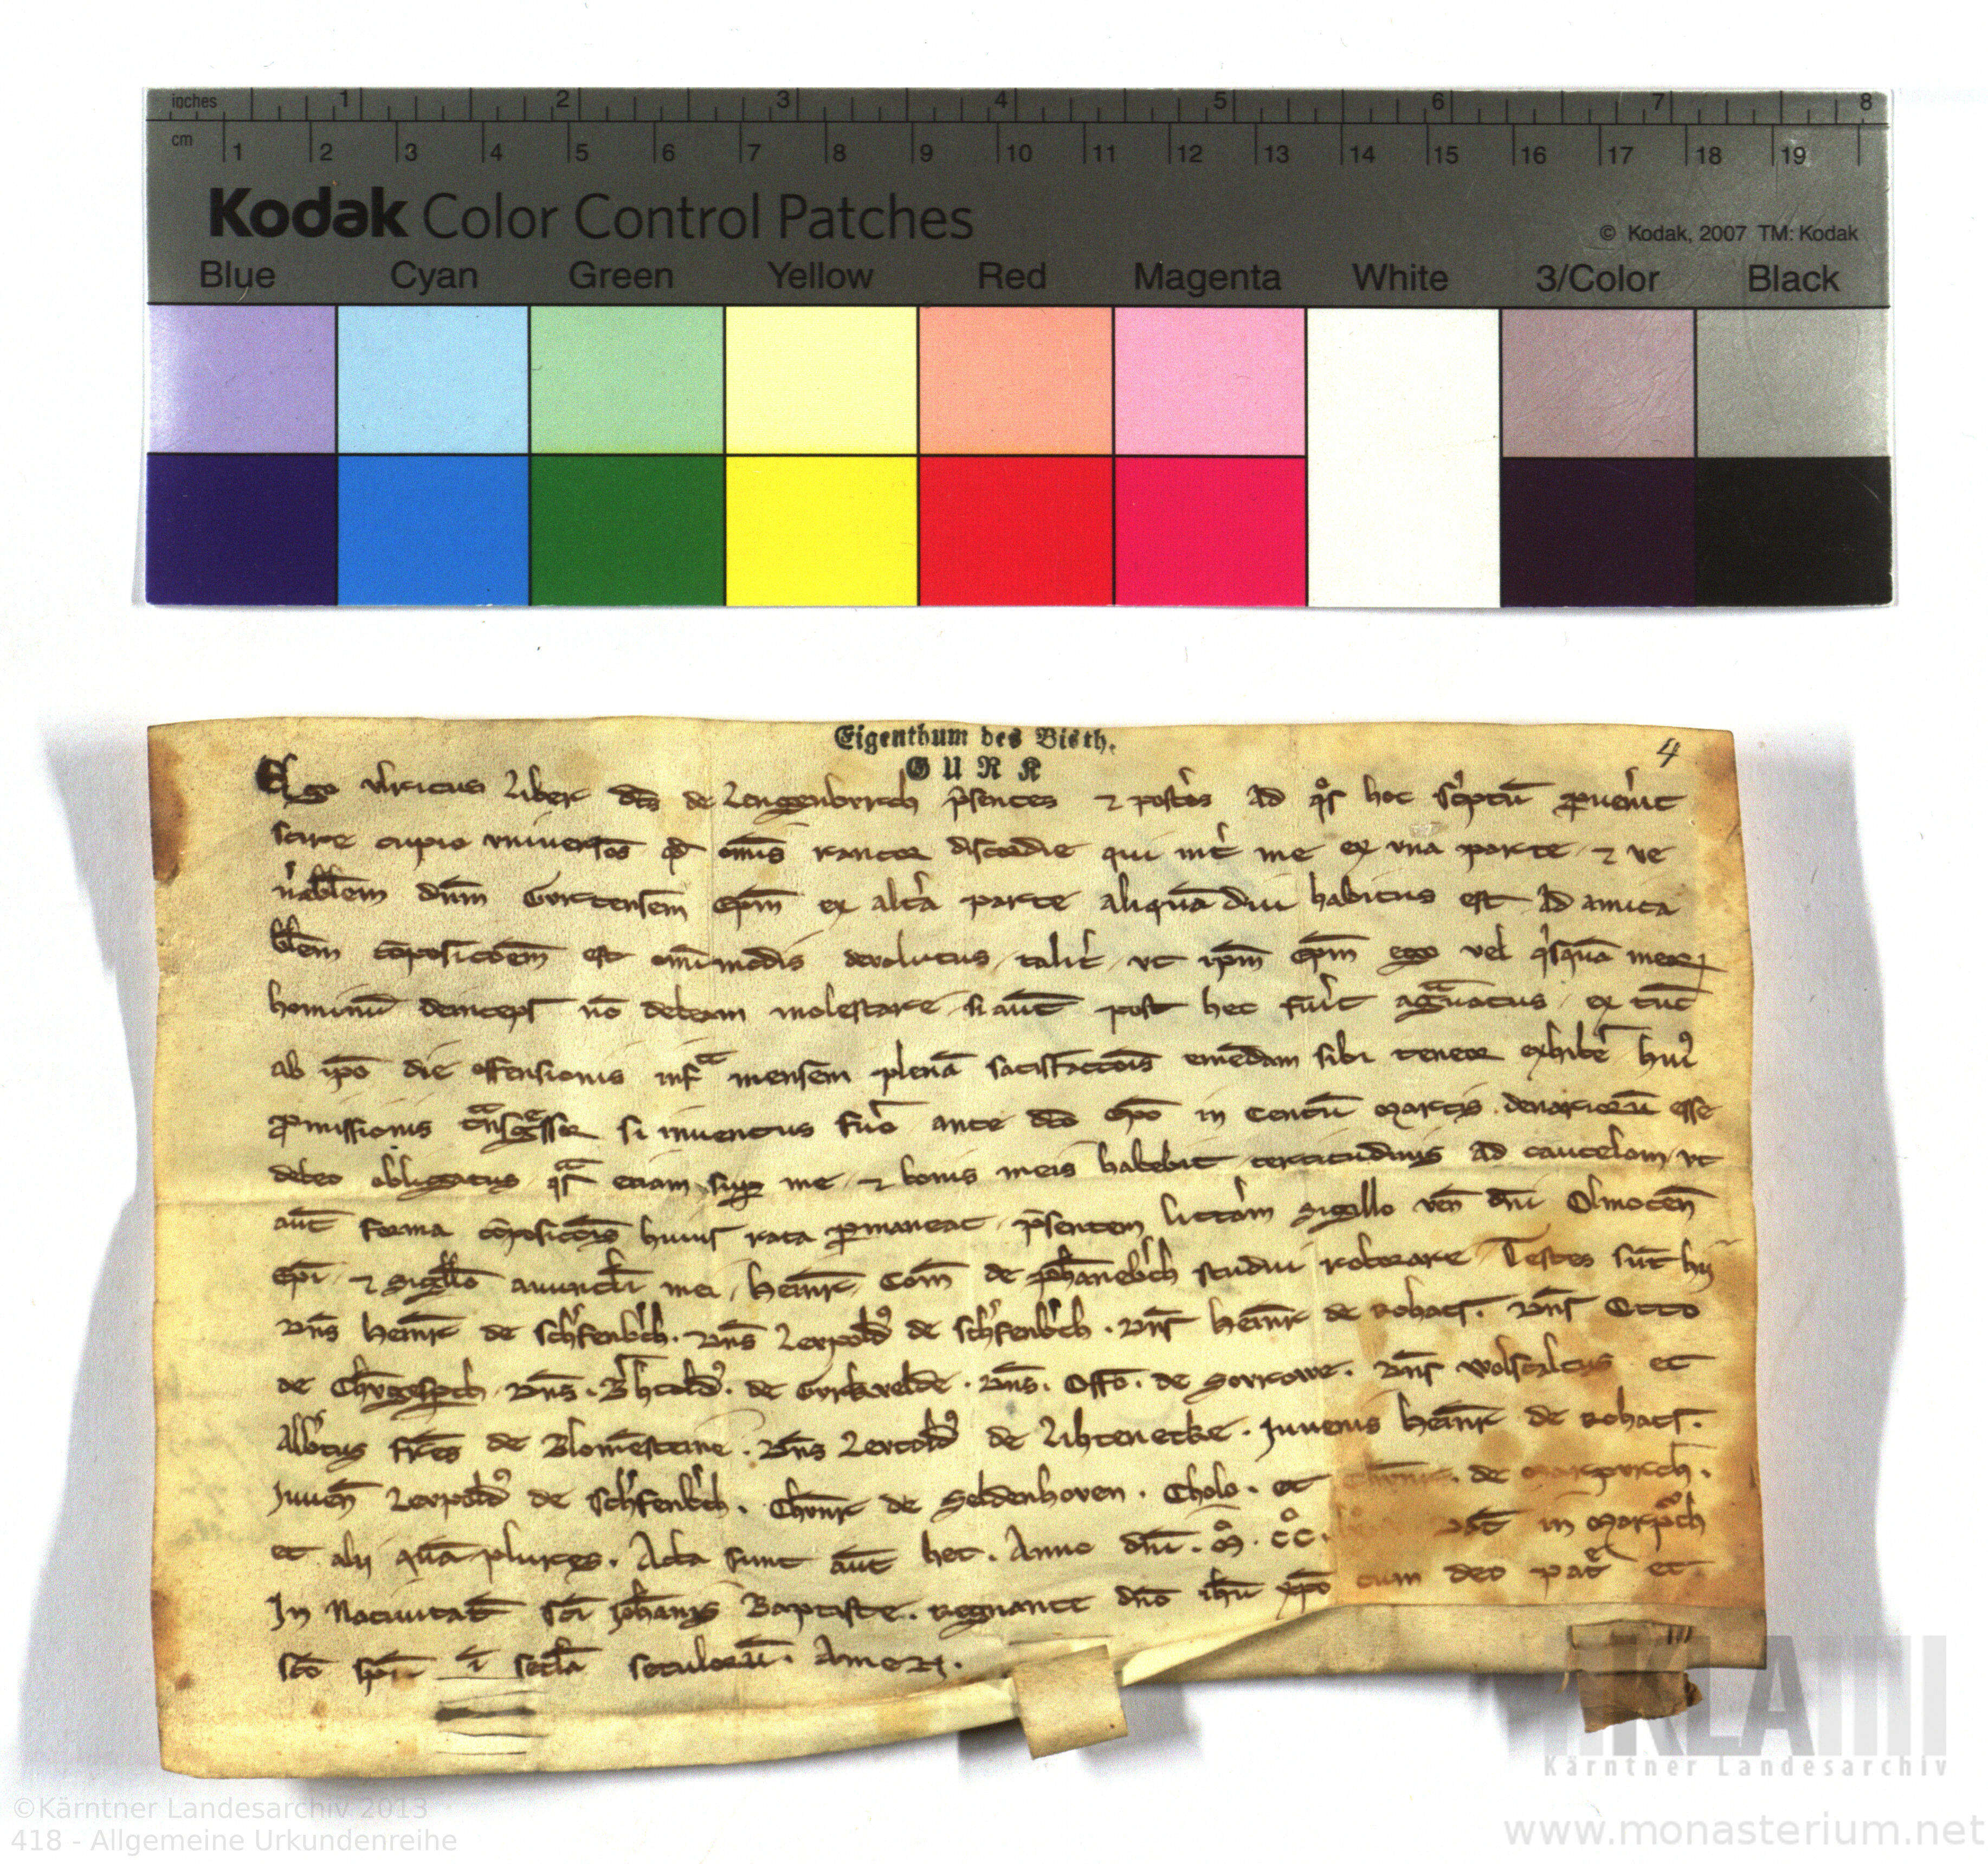 inches 1 2 3 4 5 6 7 8
cm 1 2 3 4 5 6 7 8 9 10 11 12 13 14 15 16 17 18 19
Kodak Color Control Patches
© Kodak, 2007 TM: Kodak
Blue Cyan Green Yellow Red Magenta White 3/Color Black
Eigenthum des Bisth.
GURK
4
Ego vlricus Liber dc̄s de Lengenbvrch p̄sentes ⁊ postos ad qos hoc scptū ꝑuenit
scire cupio vniuersos qd̄ om̄is rancor discordie qui int me ex vna parte ⁊ ve
nabilem dn̄m Gvrcensem ep̄m ex alta parte aliquādiu habitus est ad amica
bilem cōposicōem est om̄imodis deuolutus talit vt ip̄m ep̄m ego vel qisquā meoꝝ
hominū deinceps nō debeam molestare si aūt post hec fuit agrauatus ex tūc
ab ip̄o die offensionis infra mensem plenā satisfactōis emēdam sibi teneor exhibe hui
ꝓmissionis tnsgssor si inuentus fuo ante dc̄o ep̄o in Centū marcis denariorū esse
debeo obligatus qs etiam sup me ⁊ bonis meis habebit certitudinis ad cautelam vt
aūt forma cōposicōis huius rata ꝑmaneat p̄sentem litteram sigillo ven̄ dn̄i Olmocen̄
ep̄i ⁊ sigillo auunculi mei Heinr̄ Com̄ de phannebch studui roborare Testes sūt hij
Dn̄s Heinr̄ de schfenbch. Dn̄s Levpold de schfenbch. Dn̄s Heinr̄ de Rohats. Dn̄s Otto
de Chvngespch Dn̄s. Bhtold. de Gvrkvelde. Dn̄s. Offo. de Sovrowe. Dn̄s wolscalcus et
Albtus fr̄es de Blomēsteine. Dn̄s Levtold de Lihtenecke. Juuenis Heinr̄ de Rohats.
Juuen̄ Levpold de schfenbch. Chvnr̄ de Seldenhoven. Cholo. et Chvnr̄. de Marpvrch.
et alij quā plures. Acta sunt aūt hec. Anno dn̄i. M. CC. in Marpch
In Natiuitate sc̄i Joh̄anis Baptiste. regnante dn̄o ih̄u xp̄o cum deo pat et
sc̄o sp̄u ī sec̄la seculorū. Amen.
KLA
Kärntner Landesarchiv
©Kärntner Landesarchiv 2013
418 - Allgemeine Urkundenreihe
www.monasterium.net